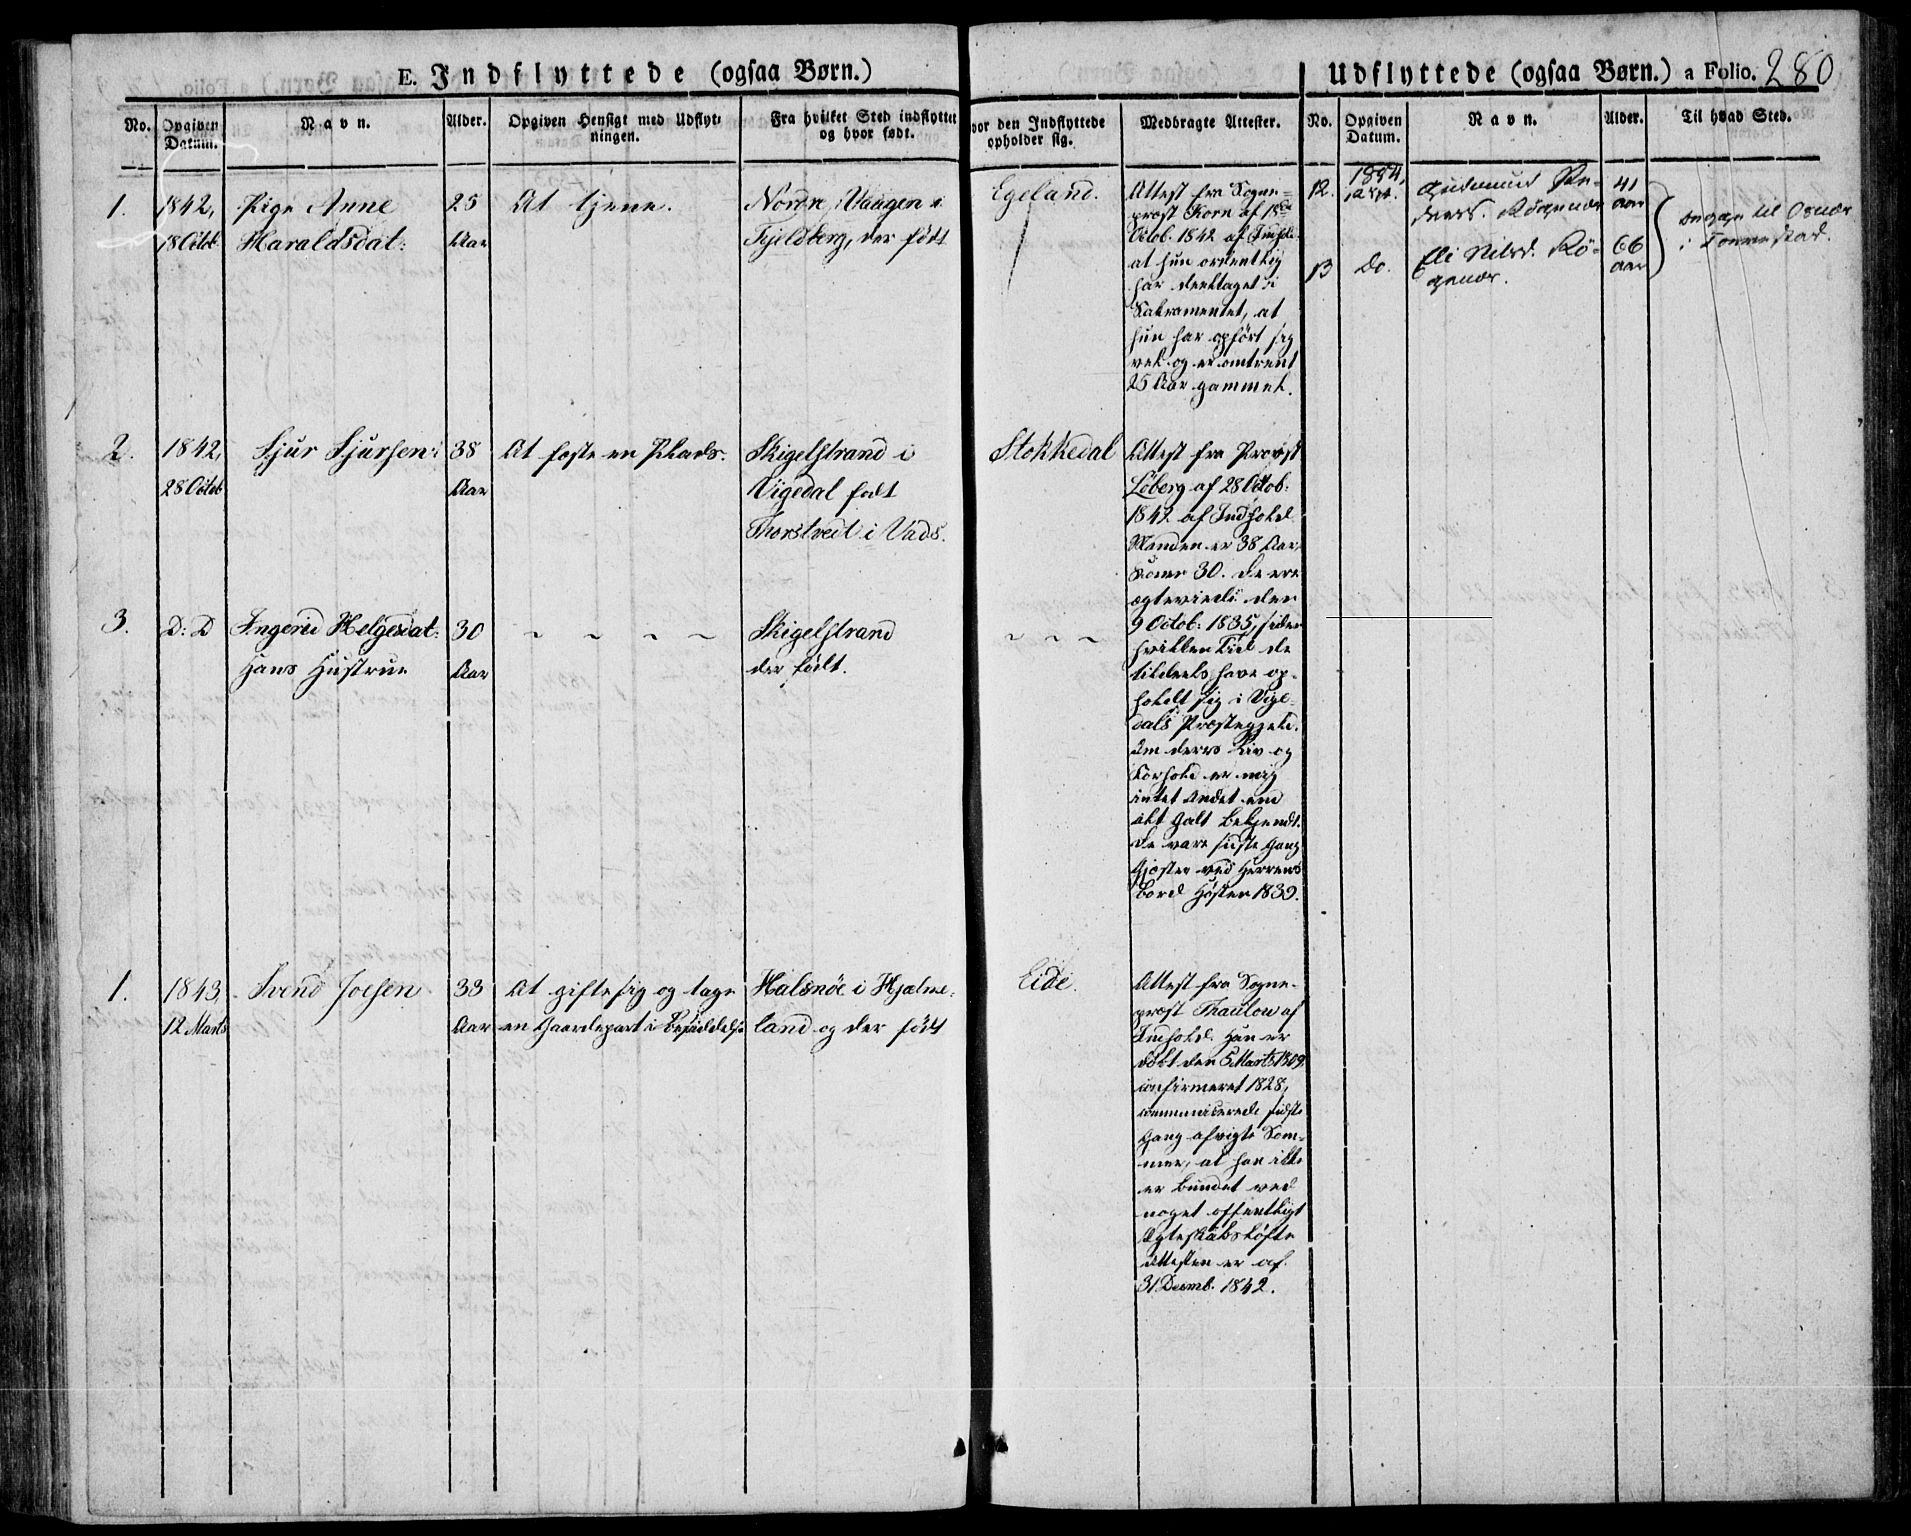 E. Indflyttede (ogsaa Børn.)
No.
Opgiven
Datum.
Navn.
Alder.
Opgiven Hensigt med Udflyt-
ningen.
Fra hvilket Sted indflyttet
og hvor født.
vor den Indflyttede
opholder sig.
Medbragte Attester.
1.
1842,
18 Octob.
Pige Anne
Haraldsdat:
25
Aar
At tjene.
Nordre Vaagen i
Fjeldberg, der født
Egeland.
Attest fra Sogne-
prest Korn af 18de
Octob. 1842 af Indhold
at hun ordentlig
har deeltaget i
Sakramentet, at
hun har opført sig
vel og er omtrent
25 Aar gammel.
2.
1842,
28 Octob
Sjur Sjursen
38
Aar
At fæste en Plads.
Skigelstrand i
Vigedal født
Thorstvedt i Vads.
Stokkedal
Attest fra Provst
Løberg af 28 Octob:
1842 af Indhold
Manden er 38 Aar,
Konen 30. De ere
ægteviede den
9 Octob: 1835, siden
hvilken Tid de
tildeels have op-
holdt sig i Vige-
dals Præstegjeld.
Om deres Liv og
Forhold er mig
intet Andet end
alt Godt bekjendt.
De vare sidste Gang
Gjester ved Herrens
Bord Høsten 1839.
3.
D: D
Ingerid Helgesdat:
Hans Hustrue
30
Aar
~ ~ ~ ~
Skigelstrand
der født.
~ ~ ~
1.
1843,
12 Marts
Svend Joesen
33
Aar
At gifte sig og tage
en Gaardepart i Besiddelse
Halsnøe i Hjelme-
land og der født
Eide.
Attest fra Sogne-
prest Thaulow af
Indhold. Han er
født den 5 Marts 1809,
confirmeret 1828,
communicerede sidste
Gang afvigte Som-
mer, at han ikke
er bundet ved
noget offentligt
Ægteskabsløfte
Attesten er af
31 Decemb. 1842.
Udflyttede (ogsaa Børn.) a Folio. 280
No.
Opgiven
Datum.
Navn.
Alder.
Til hvad Sted.
12.
1854,
Gudmund Pe-
ders. Røgenæs
41
aar
13
Do.
Eli Nilsd. Rø-
genæs.
66
aar
til
i